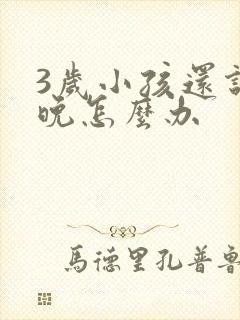 3歲小孩還
晚怎麼办
馬德里孔普魯